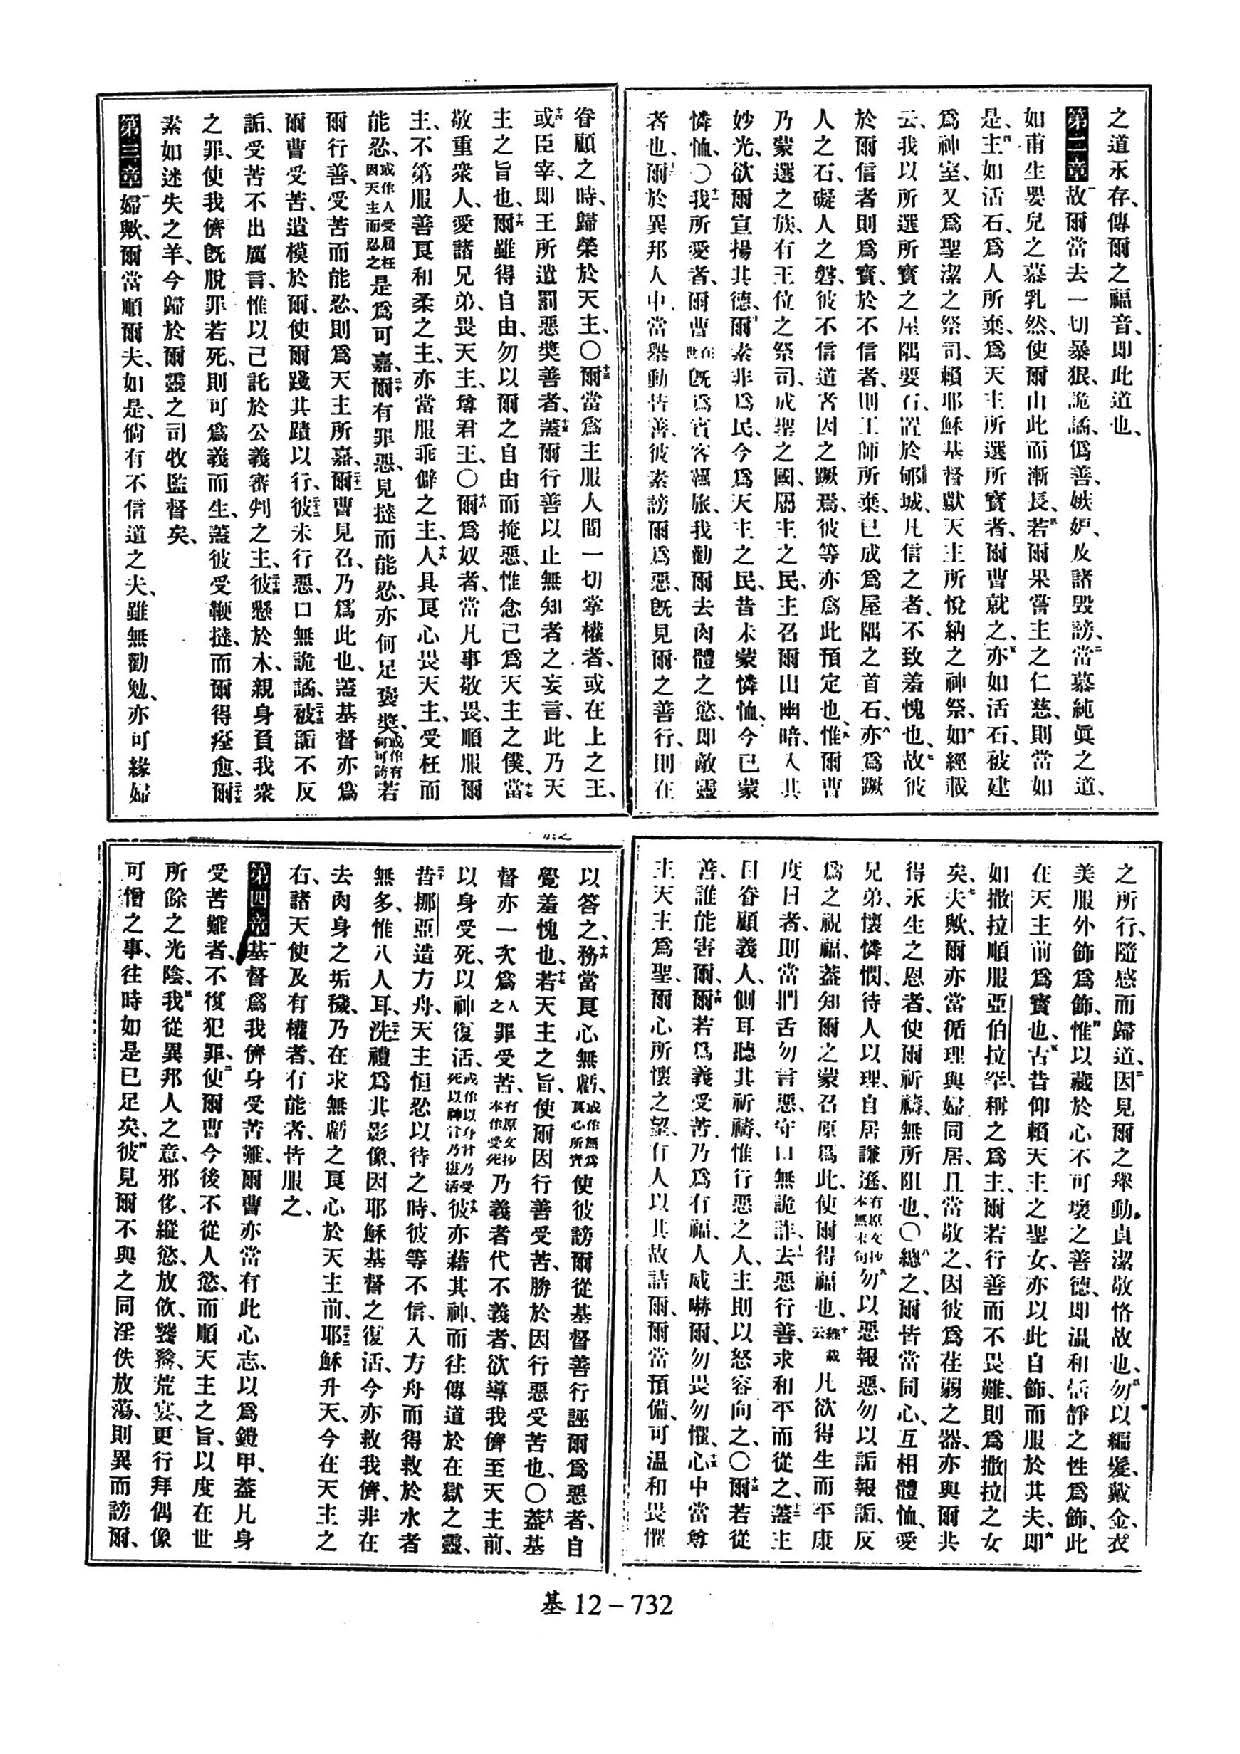 之道永存、傳爾之福音、即此道也、
第二章 一故爾當去一切暴狠、詭譎僞善、嫉妒、及諸毀謗、二當慕純眞之道、
如甫生嬰兒之慕乳然、使爾由此而漸長、三若爾果嘗主之仁慈、則當如
是、四主如活石、爲人所棄、爲天主所選所寶者、爾曹就之、五亦如活石、被建
爲神室、又爲聖潔之祭司、賴耶穌基督獻天主所悅納之神祭、六如經載
云、我以所選所寶之屋隅要石、置於郇城、凡信之者、不致羞愧也、七故彼
於爾信者則爲寶、於不信者、則工師所棄、已成爲屋隅之首石、八亦爲蹶
人之石、礙人之磐、彼不信道者因之蹶焉、彼等亦爲此預定也、九惟爾曹
乃蒙選之族、有王位之祭司、成聖之國、屬主之民、主召爾出幽暗、入其
妙光、欲爾宣揚其德、十爾素非爲民、今爲天主之民、昔未蒙憐恤、今已蒙
憐恤、〇十一我所愛者、爾曹在世旣爲賓客羈旅、我勸爾去肉體之慾、即敵靈
者也、十二爾於異邦人中、當舉動皆善、彼素謗爾爲惡、旣見爾之善行、則在
眷顧之時、歸榮於天主、〇十三爾當爲主服人間一切掌權者、或在上之王、
十四或臣宰、即王所遣罰惡獎善者、十五蓋爾行善以止無知者之妄言、此乃天
主之旨也、十六爾雖得自由、勿以爾之自由而掩惡、惟念已爲天主之僕、十七當
敬重衆人、愛諸兄弟、畏天主、尊君王、〇十八爾爲奴者、當凡事敬畏、順服爾
主、不第服善良和柔之主、亦當服乖僻之主、十九人具良心畏天主、受枉而
能忍、或作人受屈枉因天主而忍之是爲可嘉、二十爾有罪惡、見撻而能忍、亦何足褒獎、或作有何可誇若
爾行善、受苦而能忍、則爲天主所嘉、二十一爾曹見召、乃爲此也、蓋基督亦爲
爾曹受苦、遺模於爾、使爾踐其蹟以行、二十二彼未行惡、口無詭譎、二十三被詬不反
詬、受苦不出厲言、惟以己託於公義審判之主、二十四彼懸於木、親身負我衆
之罪、使我儕旣脫罪若死、則可爲義而生、蓋彼受鞭撻而爾得痊愈、二十五爾
素如迷失之羊、今歸於爾靈之司牧監督矣、
第三章 一婦歟、爾當順爾夫、如是、倘有不信道之夫、雖無勸勉、亦可緣婦
之所行、隨感而歸道、二因見爾之舉動、貞潔敬恪故也、三勿以編髮、戴金、衣
美服外飾爲飾、四惟以藏於心不可壞之善德、即溫和恬靜之性爲飾、此
在天主前爲寶也、五古昔仰賴天主之聖女、亦以此自飾、而服於其夫、六即
如撒拉順服亞伯拉罕、稱之爲主、爾若行善而不畏難、則爲撒拉之女
矣、七夫歟、爾亦當循理與婦同居、且當敬之、因彼爲荏弱之器、亦與爾共
得永生之恩者、使爾祈禱、無所阻也、〇八總之、爾皆當同心、互相體恤、愛
兄弟、懷憐憫、待人以理、自居謙遜、有原文抄本無末句九勿以惡報惡、勿以詬報詬、反
爲之祝福、蓋知爾之蒙召、原爲此、使爾得福也、十經載云凡欲得生而平康
度日者、則當捫舌勿言惡、守口無詭詐、十一去惡行善、求和平而從之、十二蓋主
目眷顧義人、側耳聽其祈禱、惟行惡之人、主則以怒容向之、〇十三爾若從
善、誰能害爾、十四爾若爲義受苦、乃爲有福、人威嚇爾、勿畏勿懼、十五心中當尊
主天主爲聖、爾心所懷之望、有人以其故詰爾、爾當預備、可溫和畏懼
以答之、十六務當良心無虧、或作無爲良心所責使彼謗爾從基督善行、誣爾爲惡者、自
覺羞愧也、十七若天主之旨、使爾因行善受苦、勝於因行惡受苦也、〇十八蓋基
督亦一次爲人之罪受苦、有原文抄本作受死乃義者代不義者、欲導我儕至天主前、
以身受死、以神復活、或作以身言乃受死以神言乃復活十九彼亦藉其神、而往傳道於在獄之靈、
二十昔挪亞造方舟、天主恒忍以待之時、彼等不信、入方舟而得救於水者
無多、惟八人耳、二十一洗禮爲其影像、因耶穌基督之復活、今亦救我儕、非在
去肉身之垢穢、乃在求無虧之良心於天主前、二十二耶穌升天、今在天主之
右、諸天使及有權者、有能者、皆服之、
第四章 一基督爲我儕身受苦難、爾曹亦當有此心志、以爲鎧甲、蓋凡身
受苦難者、不復犯罪、二使爾曹今後不從人慾、而順天主之旨、以度在世
所餘之光陰、三我從異邦人之意、邪侈、縱慾、放飲、饕餮、荒宴、更行拜偶像
可憎之事、往時如是已足矣、四彼見爾不與之同淫佚放蕩、則異而謗爾、
基 12－732